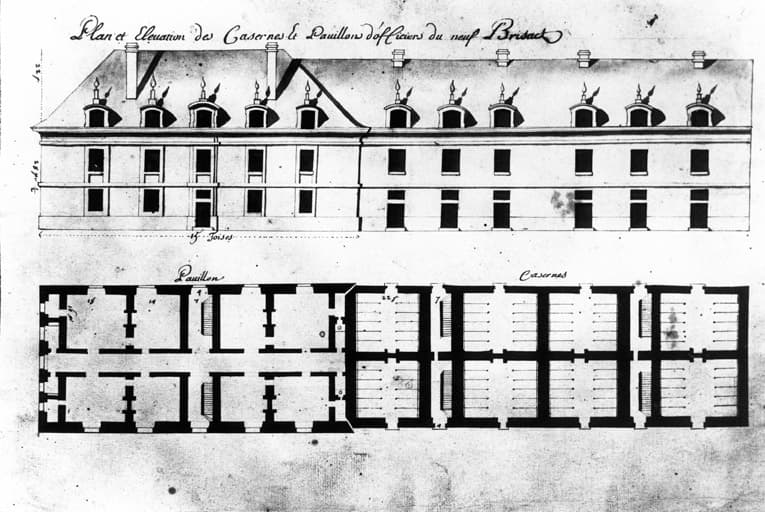 Plan et Elevation des Casernes et Pavillon d'officiers du neuf Brisack
15 Toises
Pavillon
Casernes